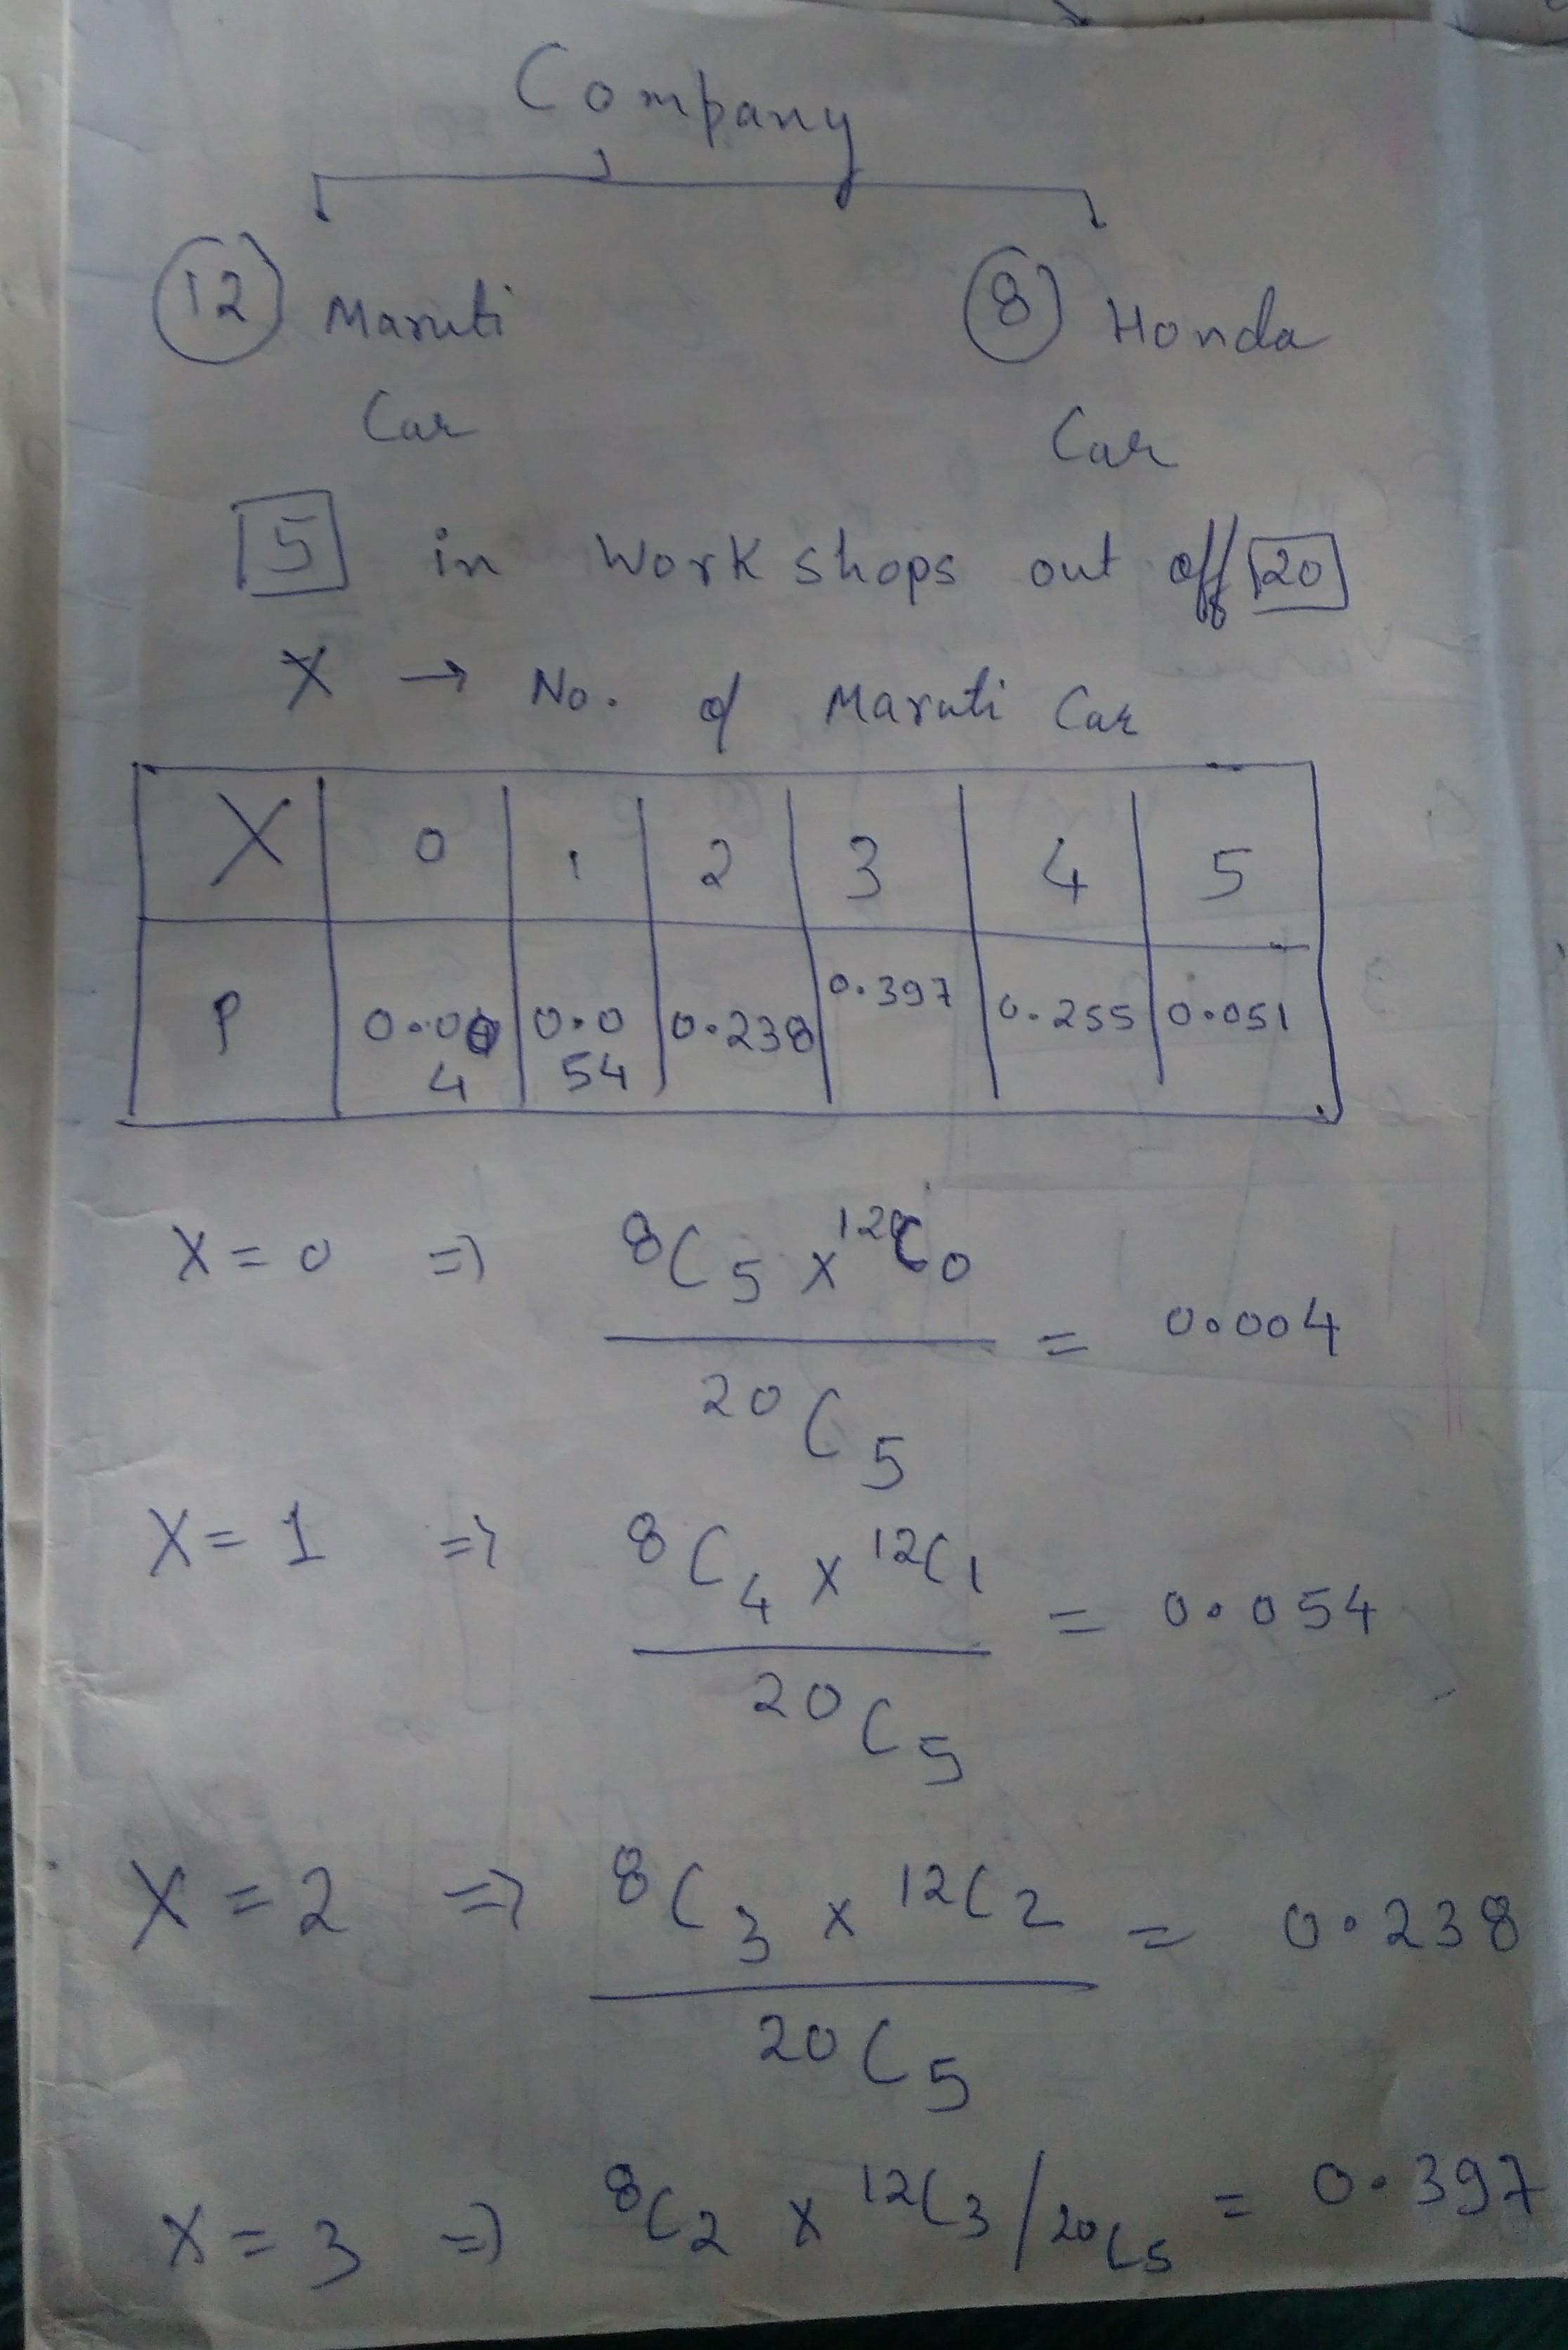 Company
12 Maruti 8 Honda
Car Car
5 in Work shops out off 20
X → No. of Maruti Car
X 0 1 2 3 4 5
P 0.004 0.054 0.238 0.397 0.255 0.051
X = 0 ⇒ ⁸C₅ x ¹²C₀ / ²⁰C₅ = 0.004
X = 1 ⇒ ⁸C₄ x ¹²C₁ / ²⁰C₅ = 0.054
X = 2 ⇒ ⁸C₃ x ¹²C₂ / ²⁰C₅ = 0.238
X = 3 ⇒ ⁸C₂ x ¹²C₃ / ²⁰C₅ = 0.397